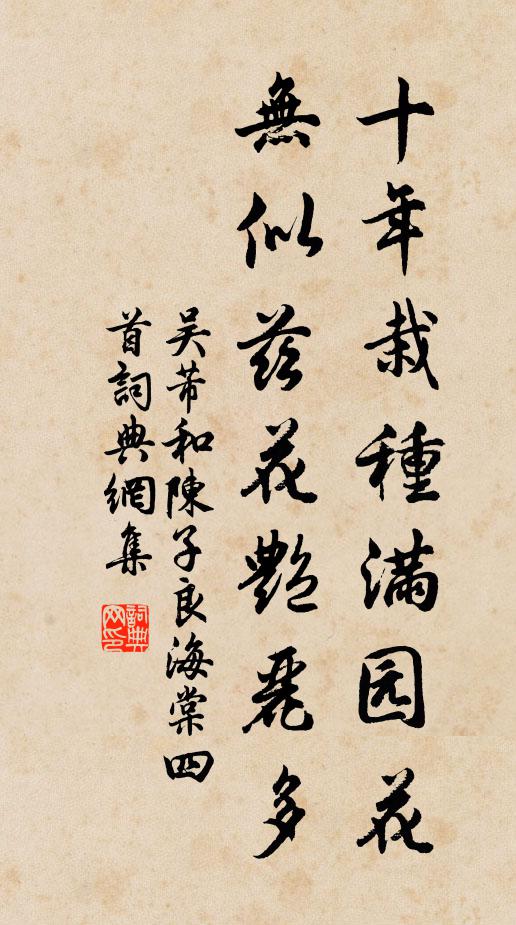 十年栽種滿园花
無似茲花艶麗多
吴芾和陳子良海棠四
首詞典網集
詞典网印